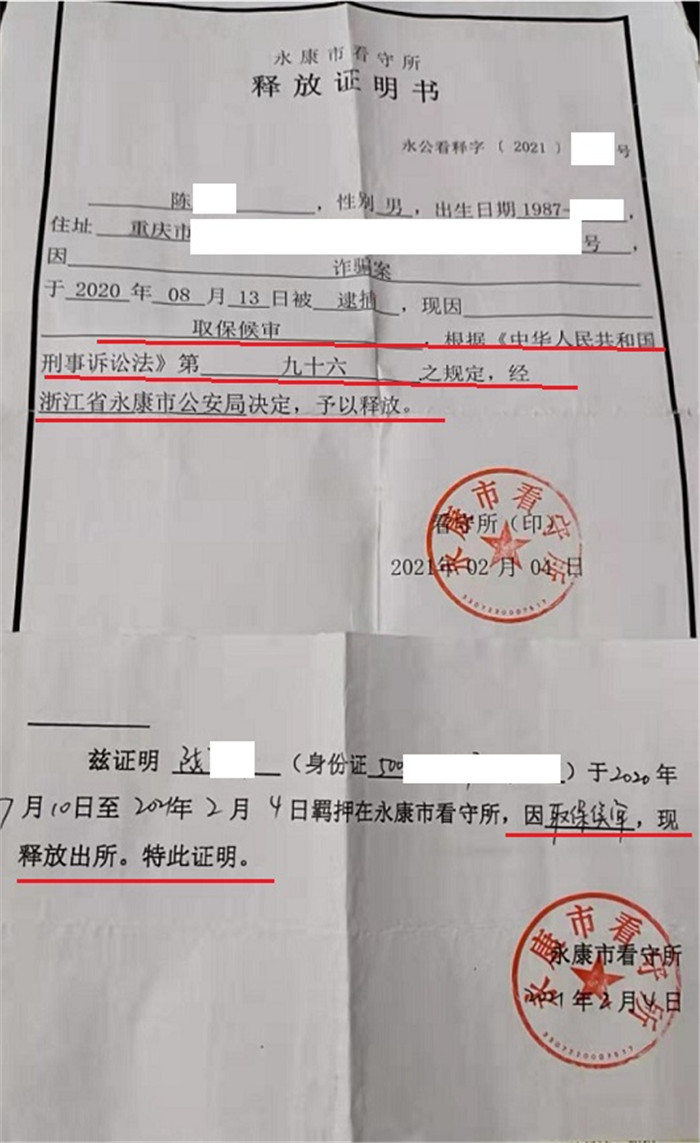 永康市看守所
释放证明书
永公看释字〔2021〕 号
陈 ,性别 男 ,出生日期1987- ,
住址 重庆市 号 ,
因 诈骗案
于 2020 年 08 月 13 日被 逮捕 ,现因
取保候审 ,根据《中华人民共和国
刑事诉讼法》第 九十六 之规定,经
浙江省永康市公安局决定,予以释放。
永康市看守所
看守所(印)
2021年 02 月 04 日
3307230007517
兹证明 陈 (身份证 500 )于2020年
7月10日至2021年2月4日羁押在永康市看守所,因取保候审,现
释放出所。特此证明。
永康市看守所
永康市看守所
2021年2月4日
3307230007517